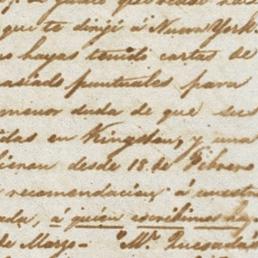 que te dirijí á Nueva York.
hayas tenido cartas de
asiado puntuales para
menor duda de que sus
idas en Kingston, y una
desde 18 de Febrero
recomendacion, á nuestro
á quien escribimos hoy
de Marzo. "Mr. Quesada